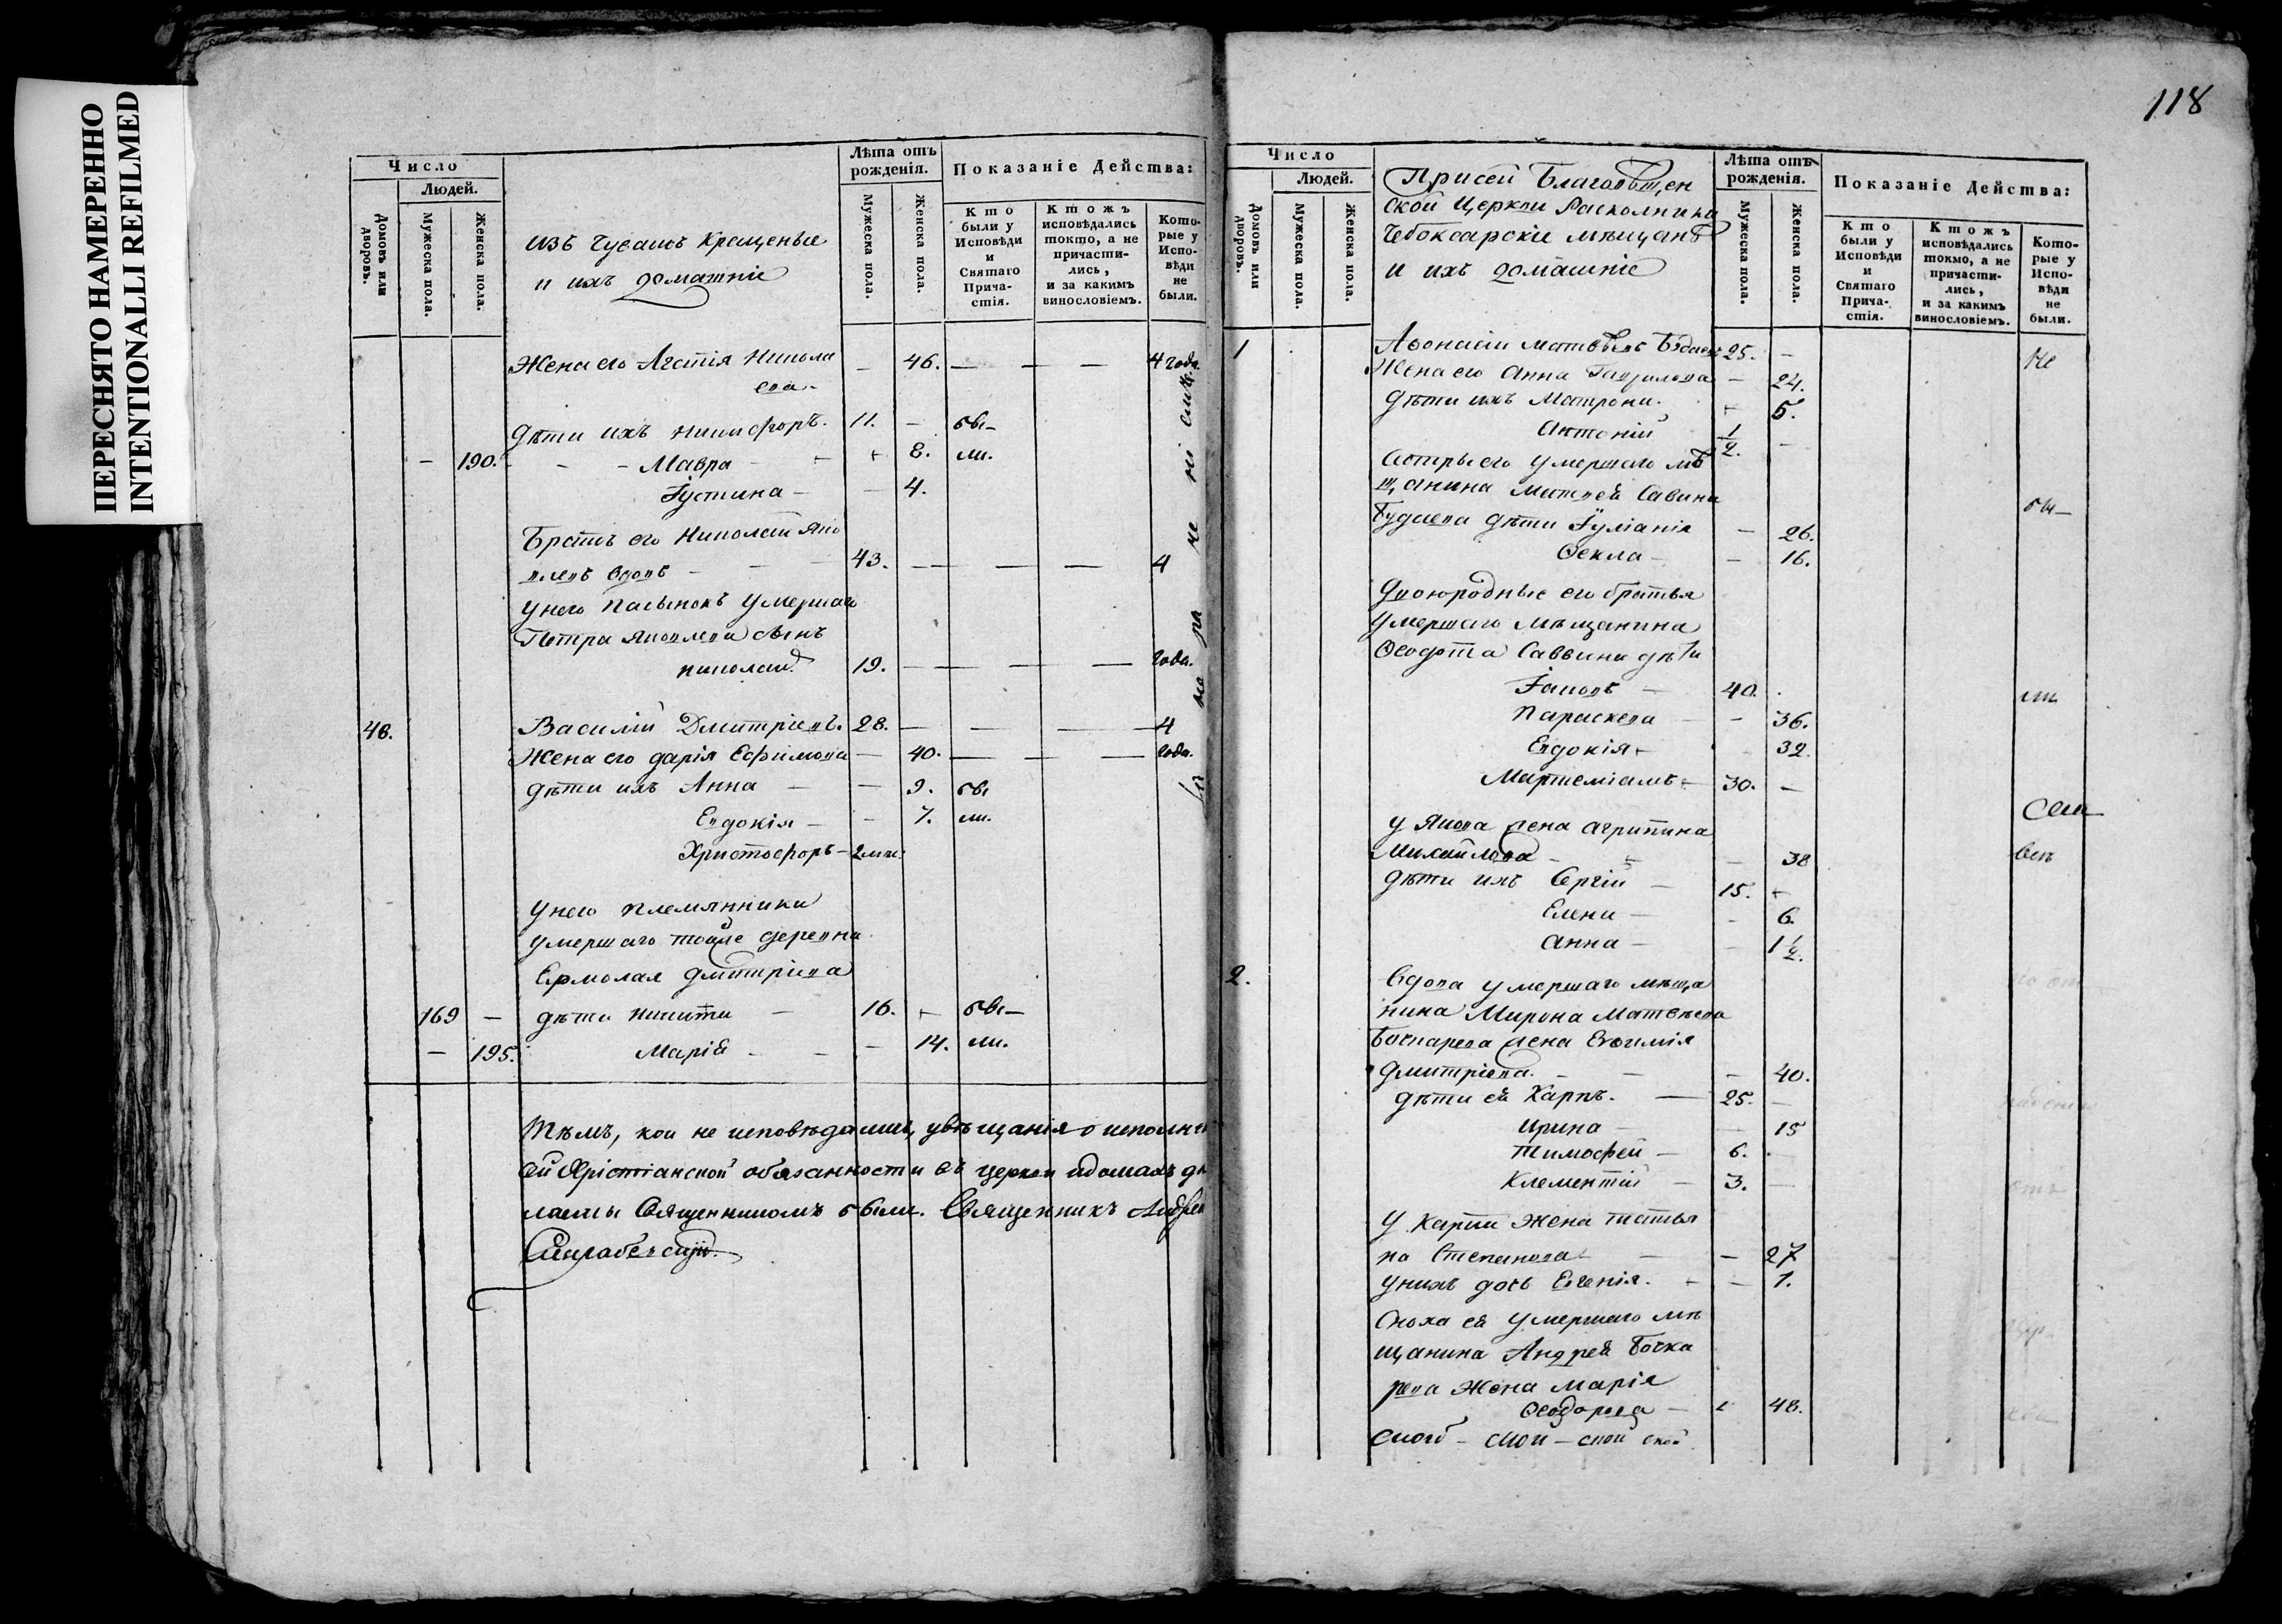 ПЕРЕСНЯТО НАМЕРЕННО
INTENTIONALLI REFILMED
Число
Людей.
Домовъ или дворовъ.
Мужеска пола.
Женска пола.
изъ Чувашъ Крещеные
и ихъ домашніе
Лѣта отъ рожденія.
Мужеска пола.
Женска пола.
Показаніе Действа:
Кто были у Исповѣди и Святаго Причастія.
Ктожъ исповѣдались токмо, а не причастились, и за какимъ винословіемъ.
Которые у Исповѣди не были.
Жена его Агафія Никола
ева 46. 4 года
Дѣти ихъ Никифоръ 11. бы
190. Мавра 8. ли.
Іустина 4.
Братъ его Николай Яко
влевъ вдовъ 43. 4
У него пасынокъ умершаго
Петра Яковлева сынъ
Николай 19. года.
48. Василій Дмитріевъ. 28. 4
Жена его Дарія Ефимова 40. года.
Дѣти ихъ Анна 9. бы
Евдокія 7. ли.
Христофоръ 2 мѣс.
У него племянники
умершаго тойже деревни
Ермолая Дмитріева
169 дѣти Никита 16. бы
195. Марія 14. ли.
Тѣмъ, кои не исповѣдались, увѣщанія о исполне
ніи Хрістіанской обязанности въ церкви и домахъ дѣ
ланы Священникомъ были. Священникъ Андрей
118
Число
Людей.
Домовъ или дворовъ.
Мужеска пола.
Женска пола.
При сей Благовѣщен
ской Церкви Раскольники
Чебоксарскіе мѣщане
и ихъ домашніе
Лѣта отъ рожденія.
Мужеска пола.
Женска пола.
Показаніе Действа:
Кто были у Исповѣди и Святаго Причастія.
Ктожъ исповѣдались токмо, а не причастились, и за какимъ винословіемъ.
Которые у Исповѣди не были.
1 Аѳонасій Матвѣевъ 25. Не
Жена его Анна Гаврилова 24.
Дѣти ихъ Матрона. 5.
Антоній 1/2.
Сестры его умершаго мѣ
щанина Матвея Савина
дѣти Іуліанія 26. бы
Ѳекла 16.
Двоюродные его братья
умершаго мѣщанина
Ѳеодота Саввина дѣти
Іаковъ 40. ли
Параскева 36.
Евдокія 32.
30.
У Якова жена Агрипина
Михайлова 38
Дѣти ихъ Сергій 15.
Елена 6.
Анна 1 1/2.
2. Вдова умершаго мѣща
нина Мирона Матвеева
Бочкарева жена Евѳимія
Дмитріева. 40.
Дѣти ея Карпъ. 25.
Ирина 15
Тимофей 6.
Клементій 3.
У Карпа жена Татья
на Степанова 27
У нихъ дочь Евгенія. 1.
Сноха ея умершаго мѣ
щанина Андрея Бочка
рева Жена Марія
Ѳеодорова 48.